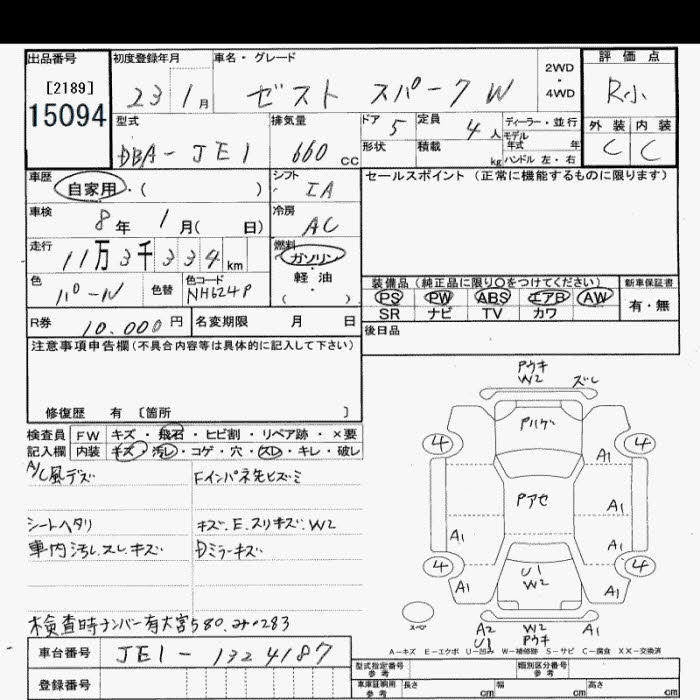 出品番号
[2189]
15094
初度登録年月
23 1月
車名・グレード
ゼスト スパークW
2WD
・
4WD
評価点
R小
型式
DBA-JE1
排気量
660 cc
ドア 5
定員 4 人
形状
積載 kg
ディーラー・並行
モデル
年式 年
ハンドル 左・右
外装 内装
C C
車歴
自家用・( )
シフト
IA
セールスポイント(正常に機能するものに限ります)
車検
8年 1月( 日)
冷房
AC
走行
11万3千334km
燃料
ガソリン
・
軽油
( )
色
パール
色替
色コード
NH624P
装備品(純正品に限り○をつけてください)
PS PW ABS エアB AW
SR ナビ TV カワ
新車保証書
有・無
R券 10.000円
名変期限 月 日
後日品
注意事項申告欄(不具合内容等は具体的に記入して下さい)
修復歴 有 〔箇所 〕
検査員 FW キズ・飛石・ヒビ割・リペア跡・×要
記入欄 内装 キズ・汚レ・コゲ・穴・スレ・キレ・破レ
A/C風デズ
Fインパネ先ヒズミ
シートヘタリ
キズ.E.スリキズ.W2
車内汚レ.スレ.キズ
Dミラーキズ
検査時ナンバー有大宮580.み.0283
車台番号 JE1-1324187
登録番号
Pウキ
W2 ズレ
Pハゲ
4 4
A1
Pアセ
A1
A1 A1
4 4
U1
W2
A1 A1
スペア
A2 W2 A1
U1 Pウキ
A-キズ E-エクボ U-凹み W-補修跡 S-サビ C-腐食 XX-交換済
型式指定番号
参考
類別区分番号
参考
車庫証明用
参考
長さ cm 幅 cm 高さ cm